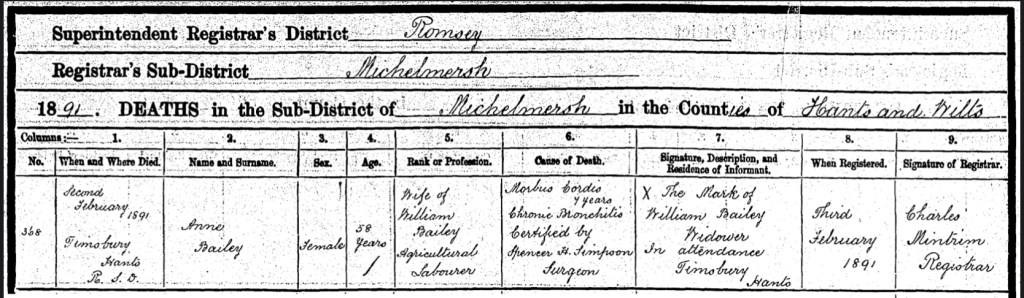 Superintendent Registrar's District Romsey
Registrar's Sub-District Michelmersh
1891. DEATHS in the Sub-District of Michelmersh in the Counties of Hants and Wilts
Columns:— 1. 2. 3. 4. 5. 6. 7. 8. 9.
No. When and Where Died. Name and Surname. Sex. Age. Rank or Profession. Cause of Death. Signature, Description, and Residence of Informant. When Registered. Signature of Registrar.
368
Second
February
1891
Timsbury
Hants
R. S. D.
Anne
Bailey
Female
58
Years
Wife of
William
Bailey
Agricultural
Labourer
Morbus Cordis
7 years
Chronic Bronchitis
Certified by
Spencer H. Simpson
Surgeon
X The Mark of
William Bailey
Widower
In attendance
Timsbury
Hants
Third
February
1891
Charles
Mintrim
Registrar